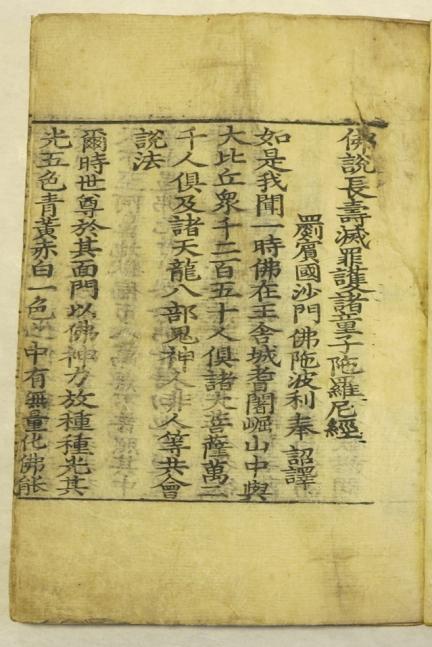 佛說長壽滅罪護諸童子陁羅尼經
罽賓國沙門佛陁波利奉 詔譯
如是我聞一時佛在王舍城耆闍崛山中與
大比丘衆千二百五十人俱諸大菩薩萬二
千人俱及諸天龍八部鬼神人非人等共會
說法
爾時世尊於其面門以佛神力放種種光其
光五色青黃赤白一色之中有無量化佛能